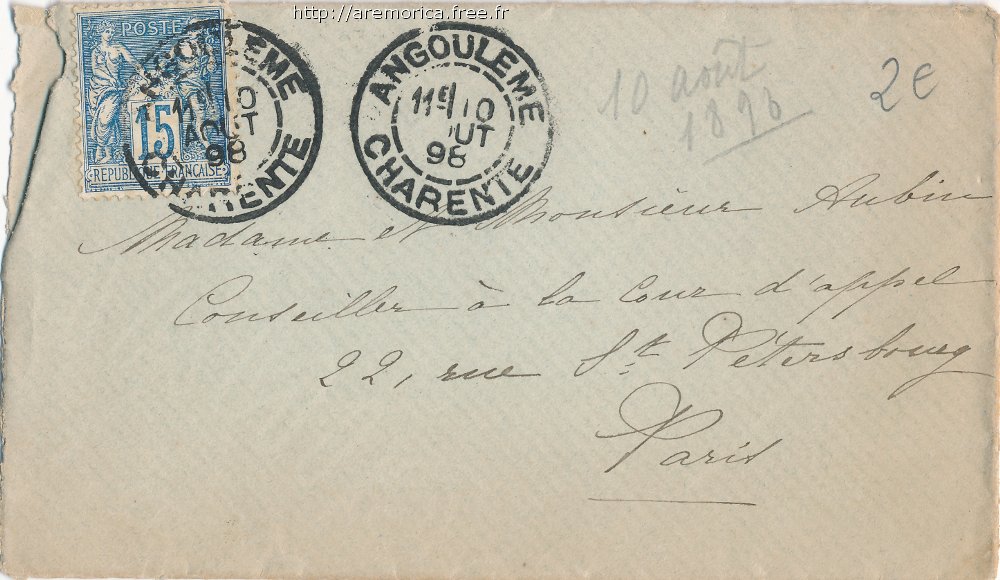 http://aremorica.free.fr
POSTE
15
REPUBLIQUE FRANÇAISE
ANGOULEME
11E 10
AOUT
98
CHARENTE
ANGOULEME
11E 10
OUT
98
CHARENTE
10 août
1898
2€
Madame et Monsieur Aubin
Conseiller à la Cour d'appel
22, rue St. Pétersbourg
Paris